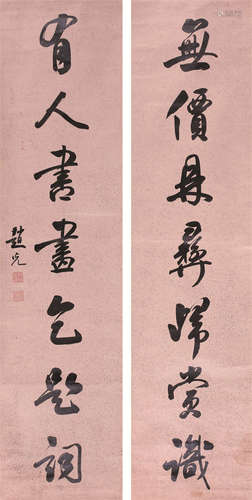 無價鼎彝歸賞識
有人書畫乞題詞
趙光